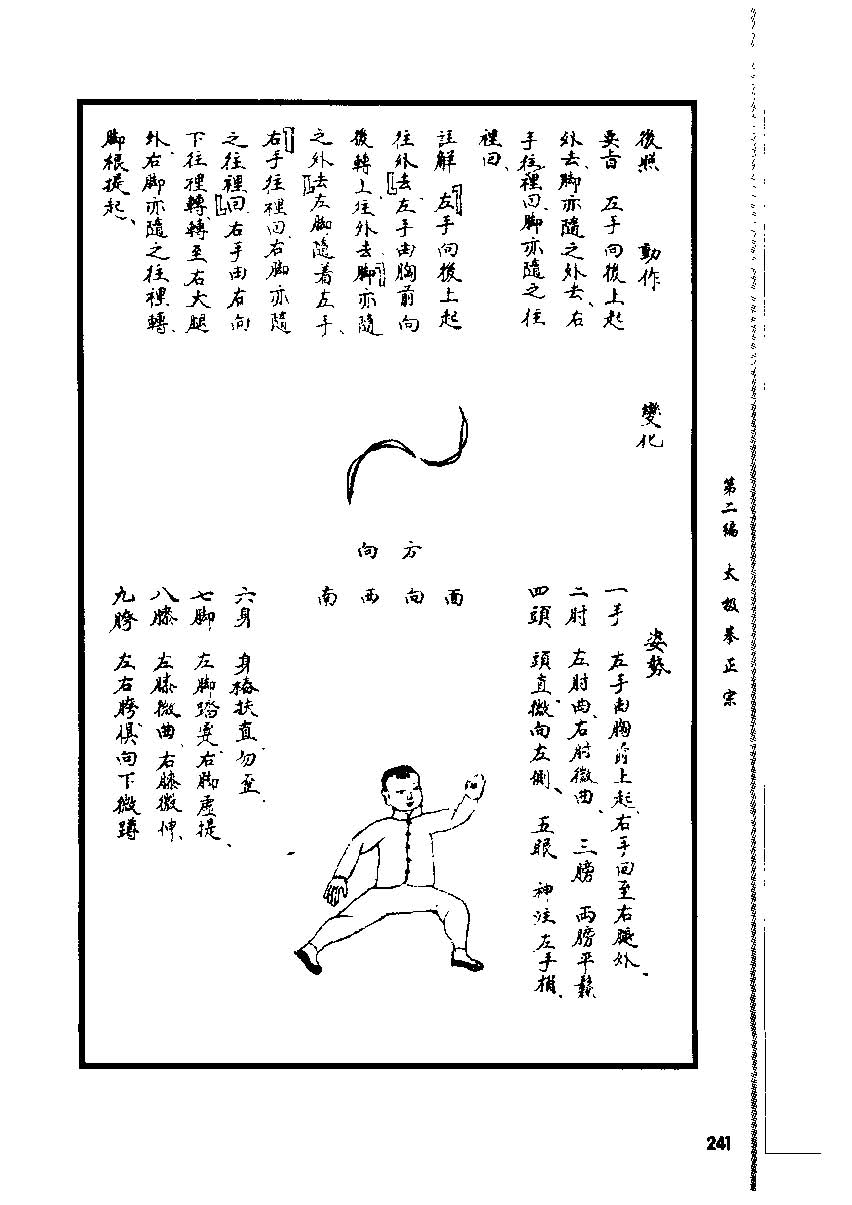 後照　動作
要旨　左手向後上起
外去、脚亦隨之外去、右
手往裡回、脚亦隨之往
裡回、
註解　左手向後上起
往外去左手由胸前向
後轉上往外去脚亦隨
之外去左脚隨着左手、
右手往裡回右脚亦隨
之往裡回右手由右向
下往裡轉轉至右大腿
外、右脚亦隨之往裡轉、
脚根提起、
變化
方向
面向西南
姿勢
一手　左手由胸前上起、右手回至右腿外、
二肘　左肘曲、右肘微曲、　三膀　兩膀平鬆
四頭　頭直微向左側、　五眼　神注左手梢、
六身　身樁扶直、勿歪、
七脚　左脚踏實、右脚虛提、
八膝　左膝微曲、右膝微伸、
九胯　左右胯俱向下微蹲
第二编　太极拳正宗
241